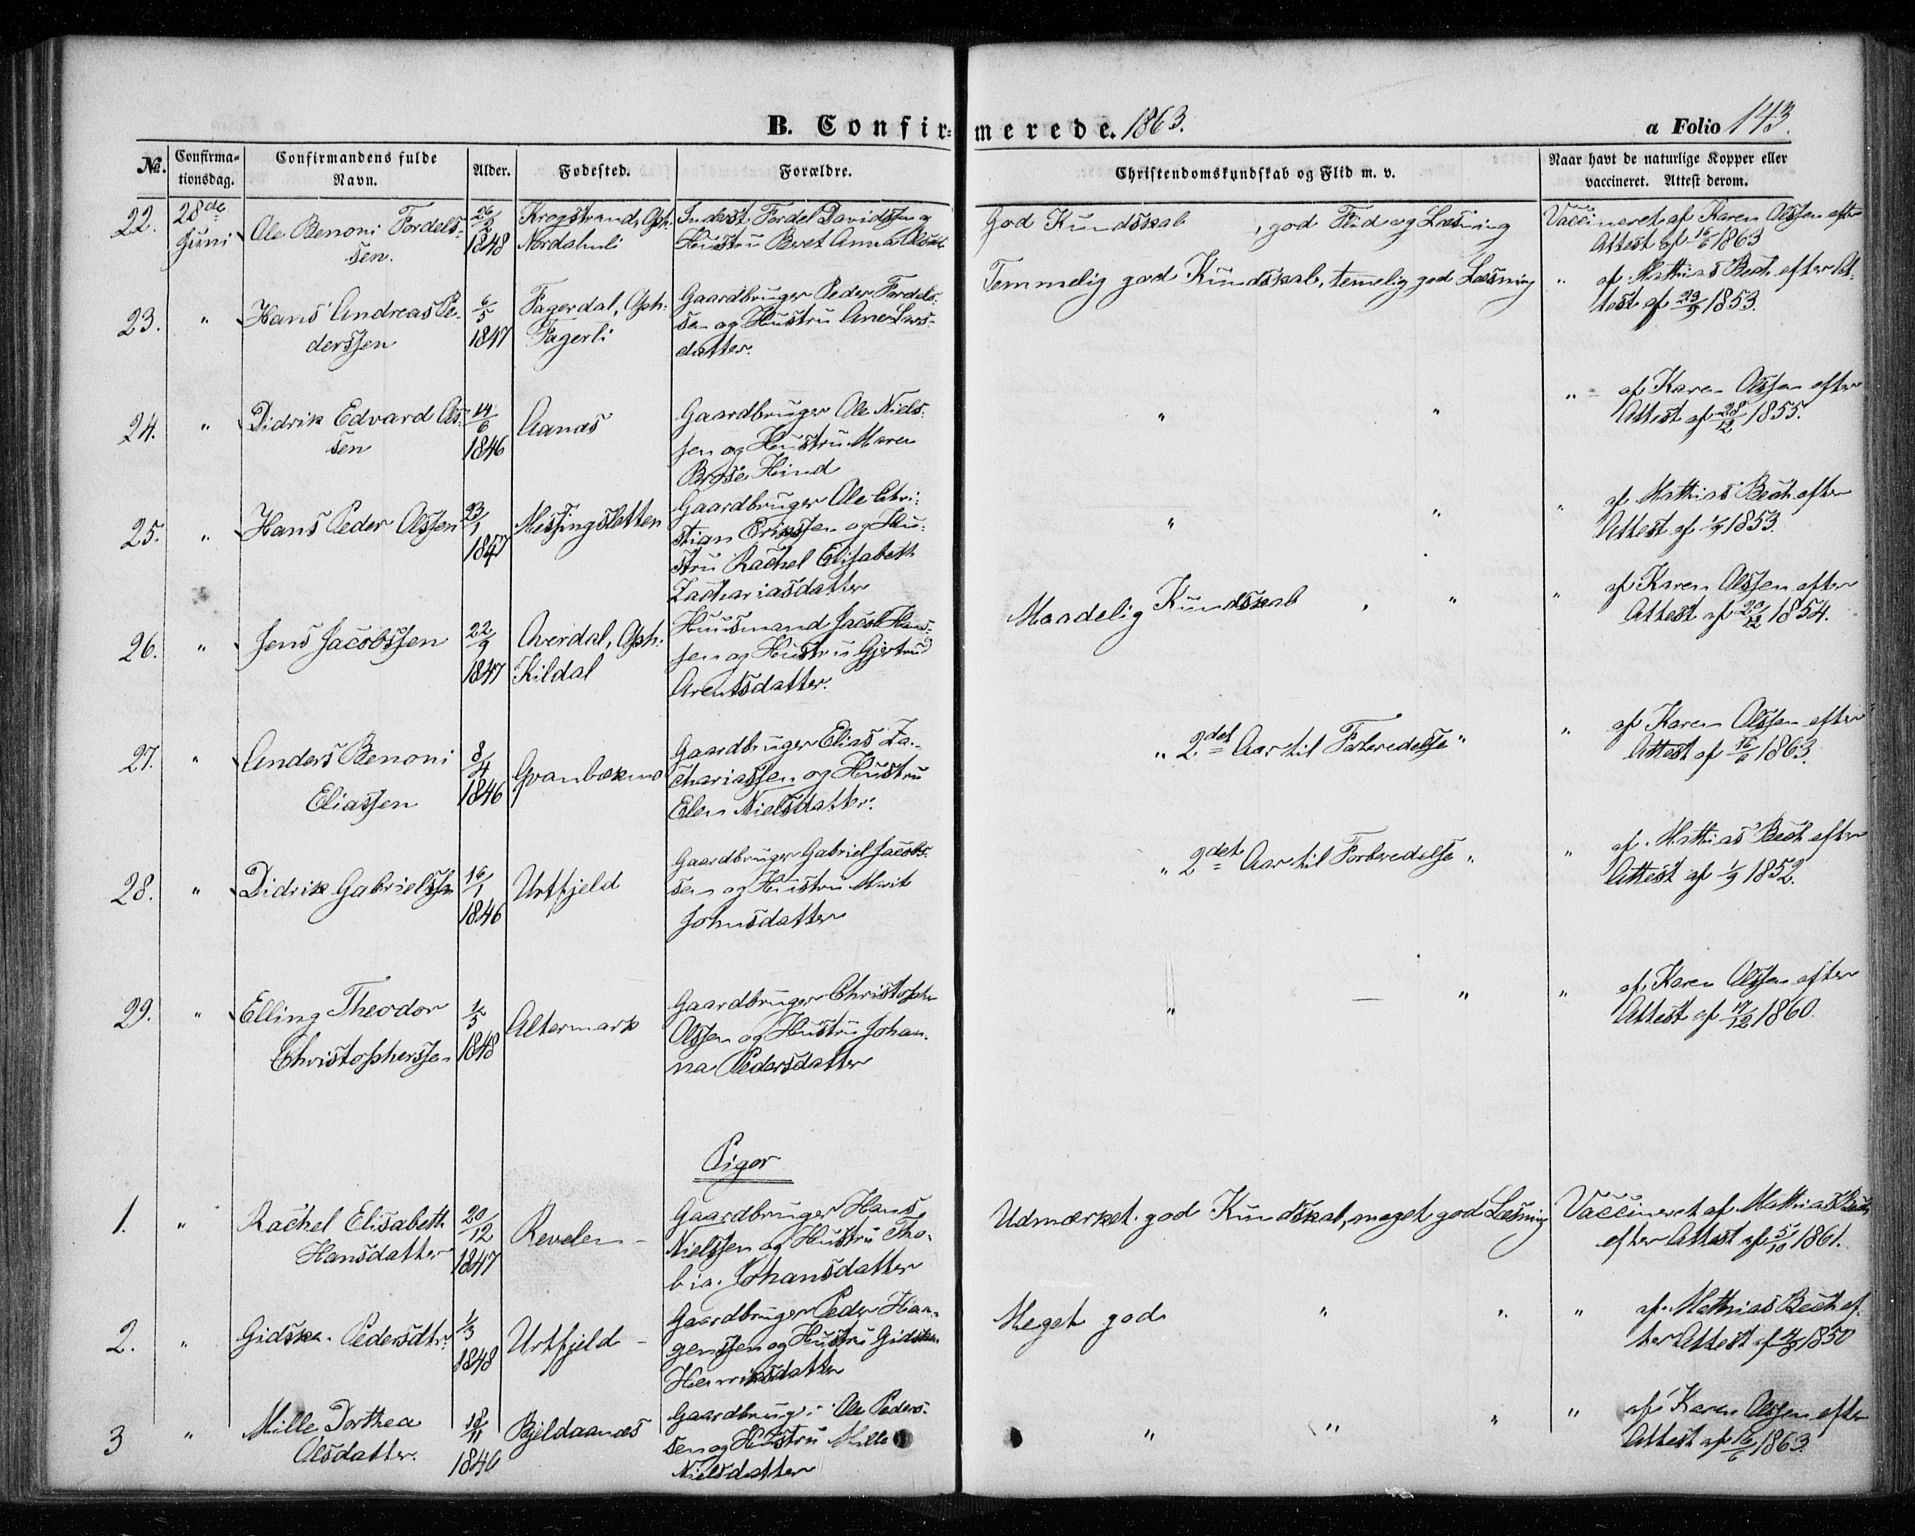 B. Confirmerede. 1863.
a Folio 143.
No. Confirmationsdag. Confirmandens fulde Navn. Alder. Fødested. Forældre. Christendomskundskab og Flid m. v. Naar havt de naturlige Kopper eller vaccineret. Attest derom.
22. 28de Juni
Ole Benoni Fordels-
sen.
1848
Krogstrand, Oph.
Nordahnli
Inderst Fordel Davidssen og
Hustru Beret Anna
God Kundskab, god Flid og Læsning
Vaccineret af Karen Olssen efter
Attest af 16/6 1863
23. "
Hans Andreas Pe-
derssen
6/5 1847
Fagerdal, Oph.
Fagerli
Gaardbruger Peder Fordels-
sen og Hustru Ane Lars-
datter.
Temmelig god Kundskab, temelig god Læsning
" af Mathias Bech efter At-
test af 23/9 1853.
24. "
Didrik Edvard Ols-
sen
14/6 1846
Aanæs
Gaardbruger Ole Niels-
sen og Hustru Maren
Hind
" "
" af Karen Olssen efter
Attest af 28/12 1855.
25. "
Hans Peder Olssen
23/1 1847
Messingsletten
Gaardbruger Ole Chri-
stian Erikssen og Hu-
stru Rachel Elisabeth
Zachariasdatter
" "
" af Mathias Bech efter
Attest af 1/9 1853.
26. "
Jens Jacobssen
22/9 1847
Averdal, Oph.
Kildal
Huusmand Jacob Hans-
sen og Hustru Gjertrud
Arentsdatter.
Maadelig Kundskab , "
" af Karen Olssen efter
Attest af 20/12 1854.
27. "
Anders Benoni
Eliassen
8/4 1846
Granbækmo
Gaardbruger Elias Za-
chariassen og Hustru
Elen Nielsdatter.
" 2det Aar til Forberedelse "
" af Karen Olssen efter
Attest af 16/6 1863.
28. "
Didrik Gabrielssen
16/1 1846
Urtfjeld
Gaardbruger Gabriel Jacobs-
sen og Hustru Marit
Johnsdatter
" 2det Aar til Forberedelse "
" af Mathias Bech efter
Attest af 1/9 1852.
29. "
Elling Theodor
Christopherssen
1848
Altermark
Gaardbruger Christopher
Olssen og Hustru Johan-
na Pedersdatter
" — "
" af Karen Olssen efter
Attest af 1860.
Piger
1. "
Rachel Elisabeth
Hansdatter
20/12 1847
Revelen -
Gaardbruger Hans
Nielssen og Hustru Tho-
bia Johansdatter
Udmærket god Kundskab, meget god Læsning
Vaccineret af Mathias Bech
efter Attest af 5/10 1861.
2. "
Gidske Pedersdtr.
1/3 1848
Urtfjeld -
Gaardbruger Peder Haa-
genssen og Hustru Gidsken
Henriksdatter
Meget god " "
" af Mathias Bech ef-
ter Attest af 4/9 1850
3 "
Mille Dorthea
Olsdatter.
18/11 1846
Bjeldaanæs
Gaardbruger Ole Peders-
sen og Hustru Mille
Nielsdatter
" " "
" af Karen Olssen efter
Attest af 16/6 1863.